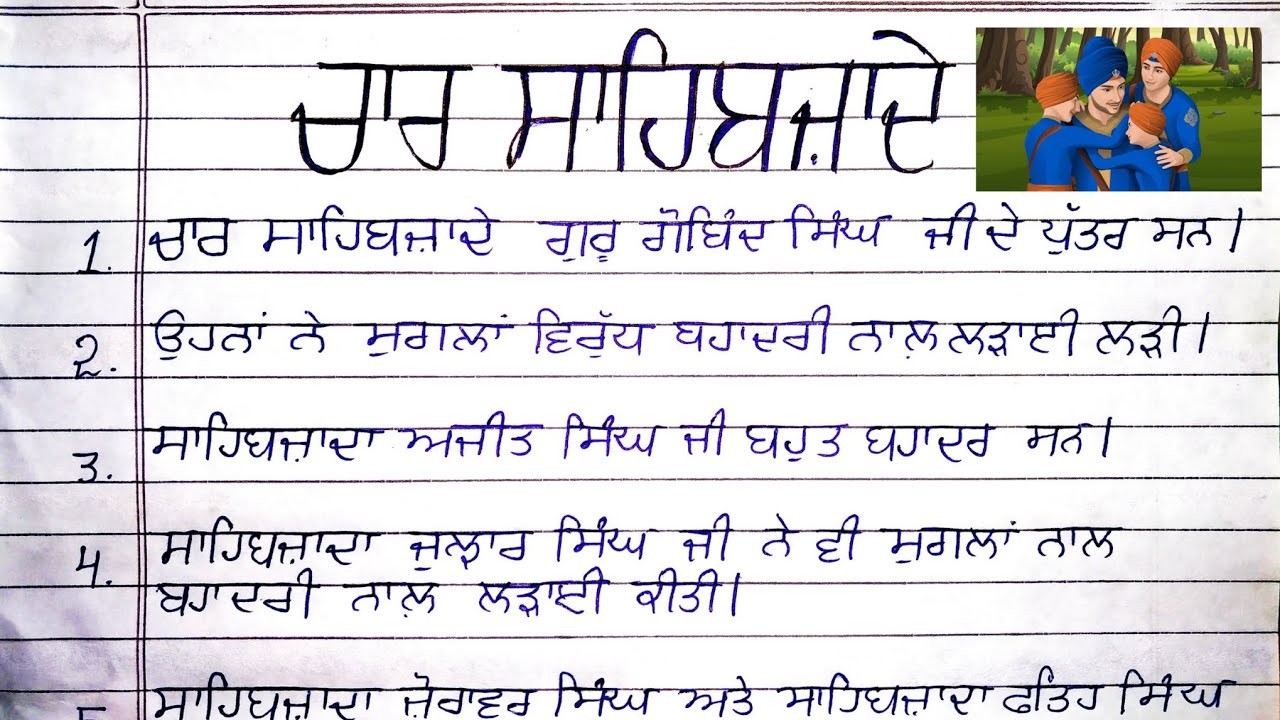 ਚਾਰ ਸਾਹਿਬਜ਼ਾਦੇ
1. ਚਾਰ ਸਾਹਿਬਜ਼ਾਦੇ ਗੁਰੂ ਗੋਬਿੰਦ ਸਿੰਘ ਜੀ ਦੇ ਪੁੱਤਰ ਸਨ।
2. ਉਹਨਾਂ ਨੇ ਮੁਗਲਾਂ ਵਿਰੁੱਧ ਬਹਾਦਰੀ ਨਾਲ਼ ਲੜਾਈ ਲੜੀ।
3. ਸਾਹਿਬਜ਼ਾਦਾ ਅਜੀਤ ਸਿੰਘ ਜੀ ਬਹੁਤ ਬਹਾਦਰ ਸਨ।
4. ਸਾਹਿਬਜ਼ਾਦਾ ਜੁਝਾਰ ਸਿੰਘ ਜੀ ਨੇ ਵੀ ਮੁਗਲਾਂ ਨਾਲ
ਬਹਾਦਰੀ ਨਾਲ਼ ਲੜਾਈ ਕੀਤੀ।
5. ਸਾਹਿਬਜ਼ਾਦਾ ਜ਼ੋਰਾਵਰ ਸਿੰਘ ਅਤੇ ਸਾਹਿਬਜ਼ਾਦਾ ਫਤਿਹ ਸਿੰਘ